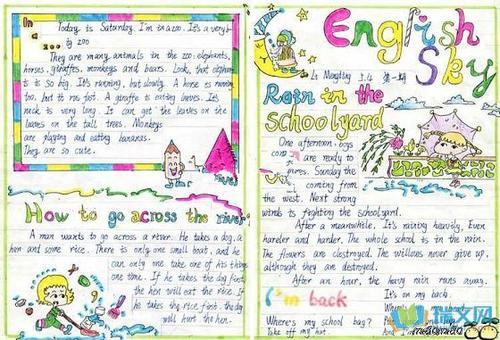 In a zoo
Today is Saturday. I'm in a zoo. It's a very
big zoo
They are many animals in the zoo: elephants,
horses, giraffes, monkeys and bears. Look, that elephant
is so big. It's running, but slowly. A horse is running
too, but its not fast. A giraffe is eating leaves. It's
neck is very long. It can get the leaves on the
leaves on the tall trees. Monkeys
are playing and eating bananas.
They are so cute.
How to go across the river
A man wants to go across a river. He takes a dog, a
hen and some rice. There is only one small boat, and he
can only take one of his things
one time. If he takes the dog first,
the hen will eat the rice. If
he takes the rice first, the dog
will hurt the hen.
English
Sky
Rain in the
schoolyard
One afternoon, boys
are ready to
Sunday the
coming from
the west. Next strong
winds is fighting the schoolyard.
After a meanwhile, It's raining heavily, Even
harder and harder. The whole school is in the rain.
The flowers are clostroyed. The willows never give up,
although they are destroyed.
After an hour, the heavy rain runs away.
I'm back
It's on my back.
Where's my school bag?
Take off my hat.
瑞文网